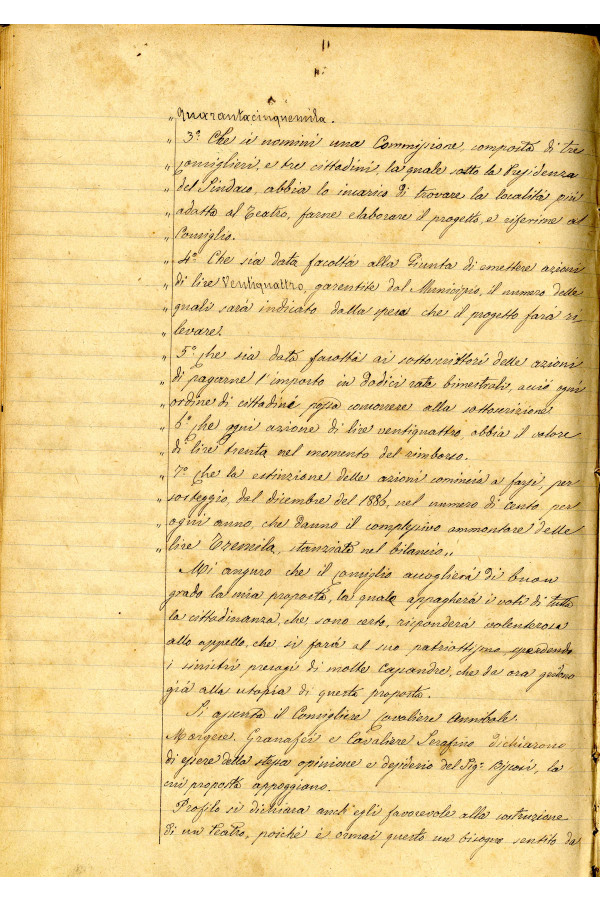 „ Quarantacinquemila.
„ 3.° Che si nomini una Commissione, composta di tre
„ consiglieri, e tre cittadini, la quale sotto la Presidenza
„ del Sindaco, abbia lo incarico di trovare la località più
„ adatta al Teatro, farne elaborare il progetto, e riferirne al
„ Consiglio.
„ 4.° Che sia data facoltà alla Giunta di emettere azioni
„ di lire Ventiquattro, garentite dal Municipio, il numero delle
„ quali sarà indicato dalla spesa che il progetto farà ri
„ levare.
„ 5.° Che sia data facoltà ai sottoscrittori delle azioni
„ di pagarne l'importo in dodici rate bimestrali, acciò ogni
„ ordine di cittadini possa concorrere alla sottoscrizione.
„ 6.° Che ogni azione di lire ventiquattro, abbia il valore
„ di lire trenta nel momento del rimborso.
„ 7.° Che la estinzione delle azioni cominci a farsi, per
„ sorteggio, dal dicembre del 1886, nel numero di cento per
„ ogni anno, che danno il complessivo ammontare delle
„ lire Tremila, stanziate nel bilancio„
Mi auguro che il Consiglio accoglierà di buon
grado la mia proposta, la quale appagherà i voti di tutta
la cittadinanza, che, sono certo, risponderà volenterosa
allo appello, che si farà al suo patriottismo sperdendo
i sinistri presagi di molte Cassandre, che da ora gridono
già alla utopia di questa proposta.
Si assenta il Consigliere Cavaliere Annibale.
Granafei e Cavaliere Serafino dichiarono
di essere della stessa opinione e desiderio del Sig.r la
cui proposta appoggiano.
Profilo si dichiara anch'egli favorevole alla costruzione
di un Teatro, poiché è ormai questo un bisogno sentito da